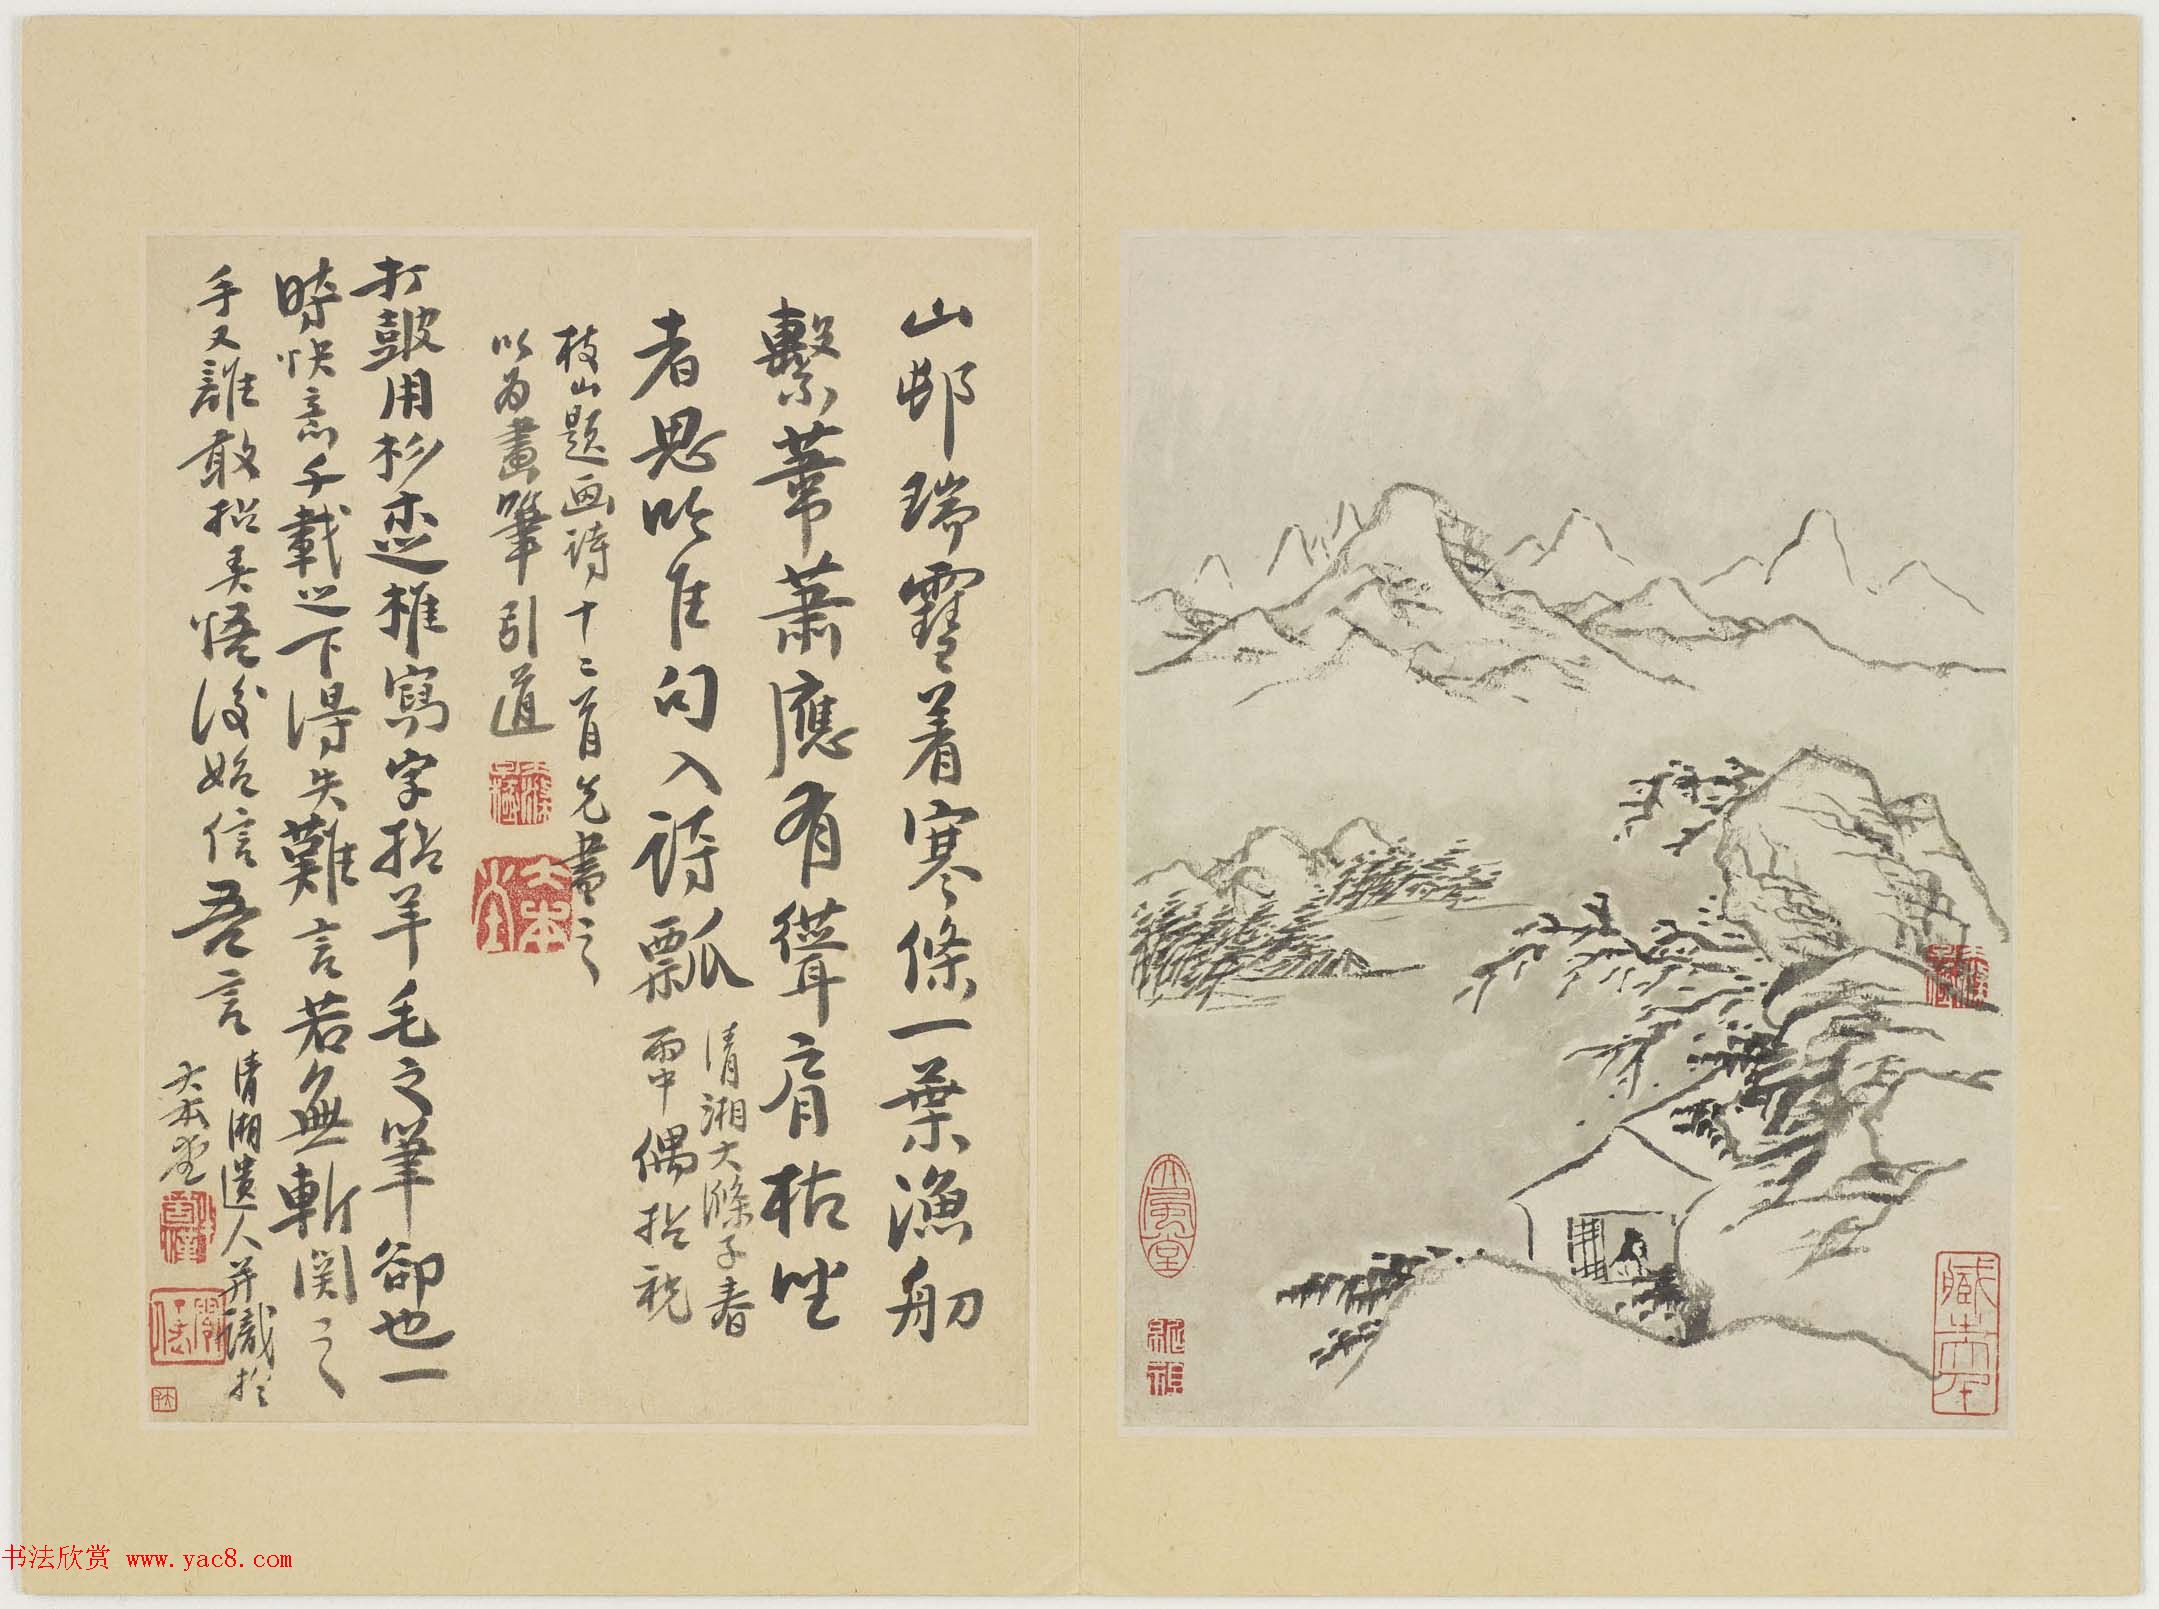 山邨瑞雪着寒條一葉漁舠
繫葦蕭應有聳肩枯坐
者思吟隹句入詩瓢
清湘大滌子春
雨中偶拈祝
枝山題画詩十二首先書之
以為畫筆引道
大本堂
打皷用杉木椎寫字拈羊毛之筆卻也一
時快意千載之下得失難言若無斬関之
手又誰敢拈弄悟後始信吾言
清湘遺人并識於
大本堂
臧大年
書法欣赏 www.yac8.com